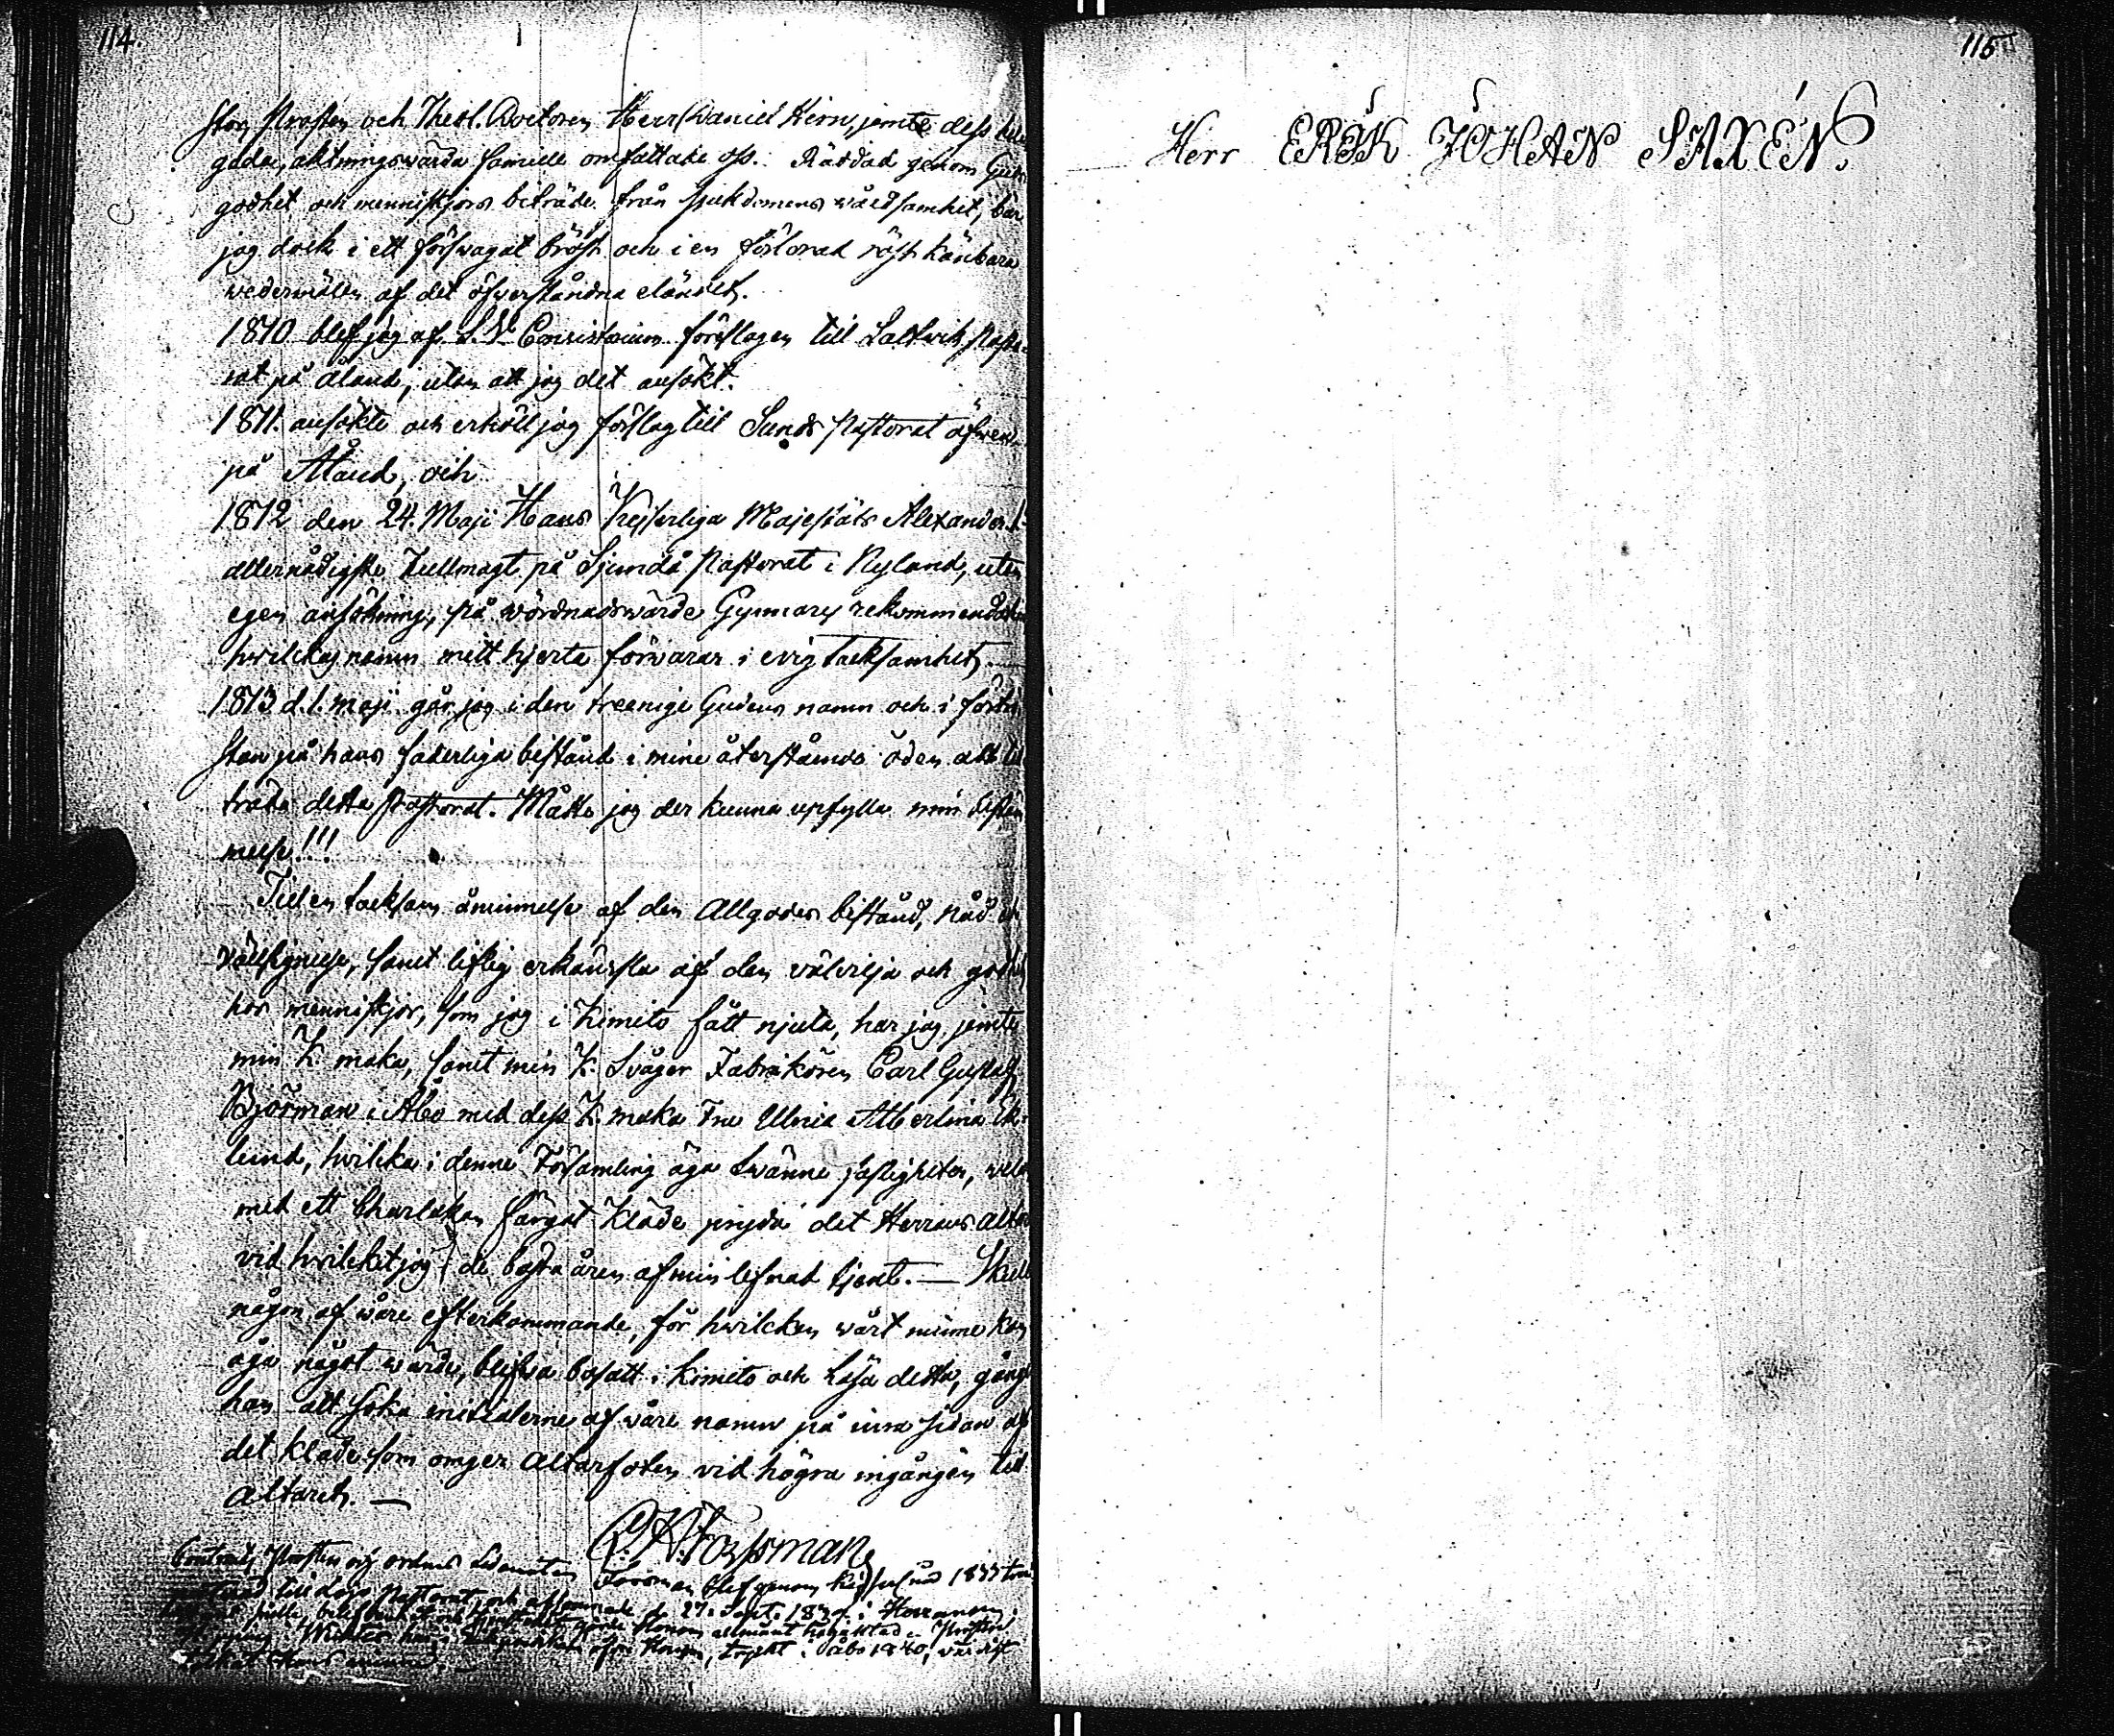 114.
Prosten och Theol. Doctoren Herr Daniel Hirn, jemte dess
goda, aktningswärda familie omfattade oss. Räddad genom Guds
godhet och menniskjors biträde från sjukdomens våldsamhet, bär
jag dock i ett förswagat bröst och i en förlorad röst känbara
wedermälen af det öfwerståndna eländet.
1810 blef jag af L.V. Consistorium föreslagen till Saltwik Pasto-
rat på Åland, utan att jag det ansökt.
1811. ansökte och erhöll jag förslag till Sunds Pastorat äfwen
på Åland, och
1812 den 24. Maji Hans Kejserliga Majestäts Alexander I
allernådigste Fullmagt på Sjundå Pastorat i Nyland, utan
egen ansökning, på wördnadswärde Gynnares rekommendation
hwilckas namn mitt hjerta förvarar i evig tacksamhet.
1813 d. 1. maji går jag i den treenige Gudens namn och i förtrö-
stan på hans faderliga bistånd i mine återstående öden att till
träda detta Pastorat. Måtte jag der kunna upfylla min bestäm
melse!!!
Till en tacksam åminnelse af den Allgodes bistånd, nåd och
välsignelse, samt liflig erkänsla af den välvilja och godhet
hos menniskjor, som jag i Kimito fått njuta, har jag jemte
min K. maka, samt min K. Svåger Fabrikören Carl Gustaf
Björman i Åbo med dess K. maka Fru Ulrica Albertina Ek-
lund, hvilcka i denne Församling äga twänne fastigheter, velat
med ett Charlakan färgat Kläde pryda det Herrans Altare
vid hvilcket jag de bästa åren af min lefnad tjent. — Skulle
någon af våre efterkommande, för hvilcken wårt minne kan
äga något wärde, blifwa bosatt i Kimito och läsa detta, gånge
han att söka initialerne af våre namn på inra sidan af
det kläde som omger Altarfoten vid högra ingången till
altaret. —
Forssman
Contracts Prosten och ordens Ledamoten Forsman blef genom Kejserl. nåd 1833
till Lojo Pastorat, och afsomnade d. 27. Sept. 1839 i Herranom.
Honom allmänt högaktad. Prosten
öfver Honom, tryckt i Åbo 1840, värdigt
115
Herr ERIK JOHAN SAXÉN.